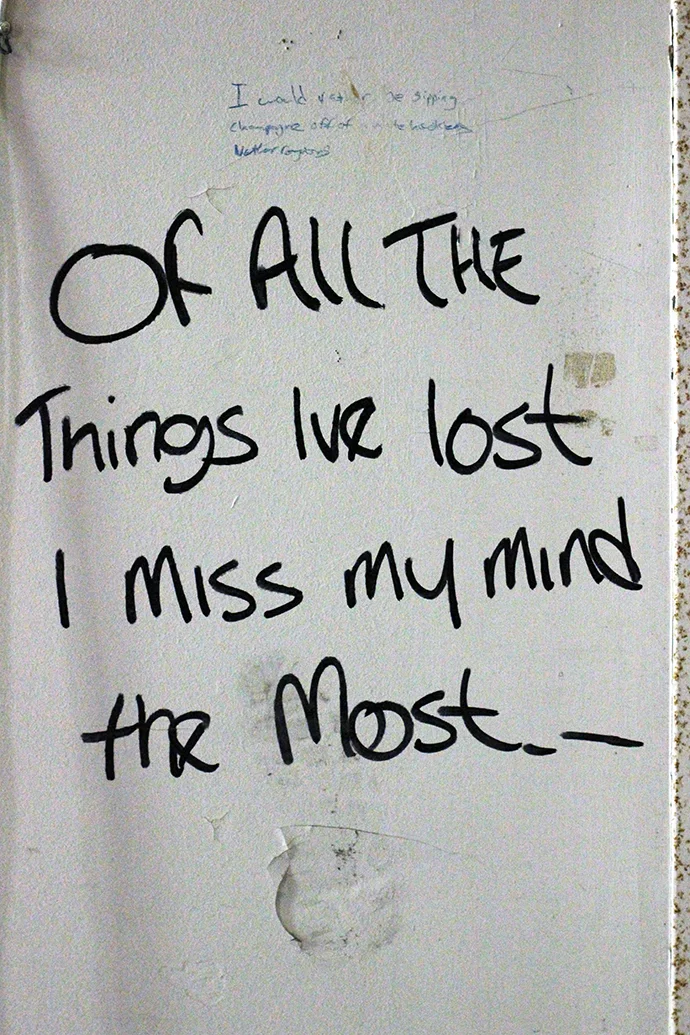 I would rather be sipping
champagne off of
OF All THE
Things Ive lost
I miss my mind
the Most.-